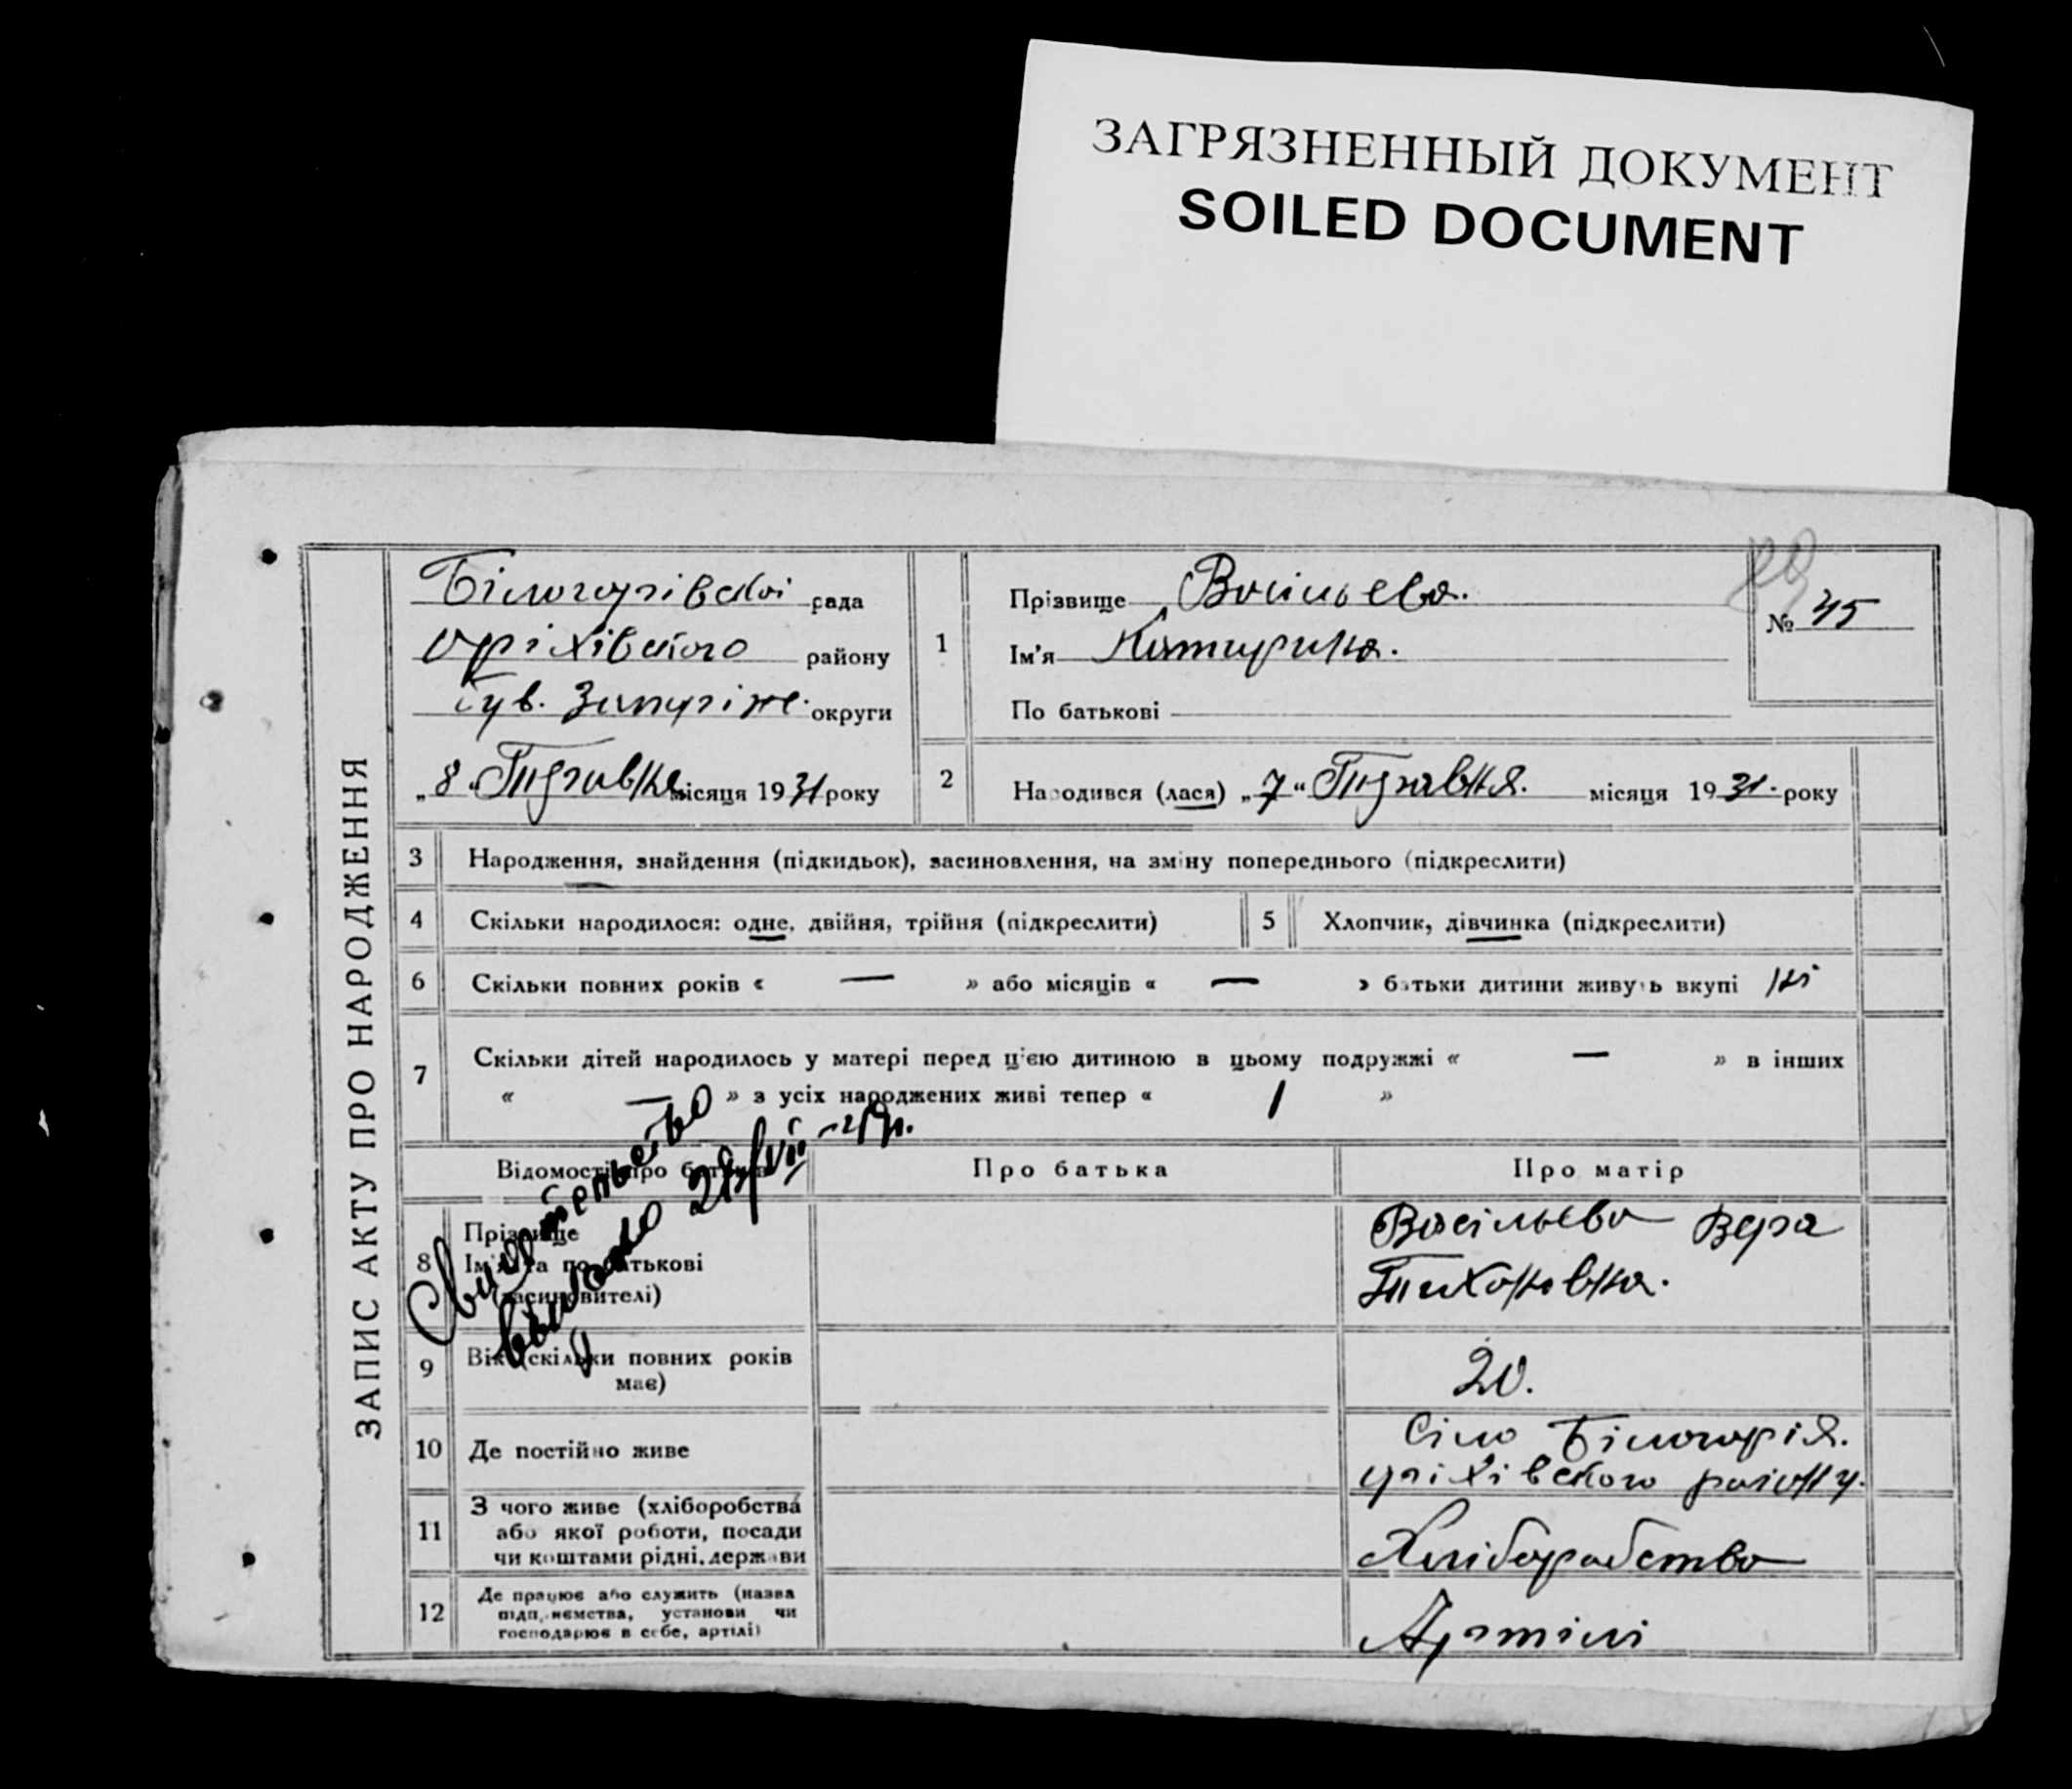 ЗАГРЯЗНЕННЫЙ ДОКУМЕНТ
SOILED DOCUMENT
ЗАПИС АКТУ ПРО НАРОДЖЕННЯ
Білогорівскоі рада
Оріхівского району
Запоріже. округи
„8„ Травня місяця 1931 року
1
Прізвище Васільева.
Ім'я Катирина.
По батькові
№ 45
2
Народився (лася) „7“ Травня. місяця 1931. року
3 Народження, знайдення (підкидьок), засиновлення, на зміну попереднього (підкреслити)
4 Скільки народилося: одне, двійня, трійня (підкреслити)
5 Хлопчик, дівчинка (підкреслити)
6 Скільки повних років « — » або місяців « — » батьки дитини живуть вкупі ні
7 Скільки дітей народилось у матері перед цією дитиною в цьому подружжі « — » в інших
« — » з усіх народжених живі тепер « 1 »
Відомості про батьків
Про батька
Про матір
8 Прізвище
Ім'я та по батькові
(засиновителі)
Васільева Вера
Тихоновна.
Свидетельство
выдано 28/VII
9 Вік (скільки повних років
має)
20.
10 Де постійно живе
Сіло Білогорія.
Оріхівского раіону.
11 З чого живе (хліборобства
або якої роботи, посади
чи коштами рідні, держави
Хліборабство
12 Де працює або служить (назва
підприємства, установи чи
господарює в себе, артілі)
Артілі